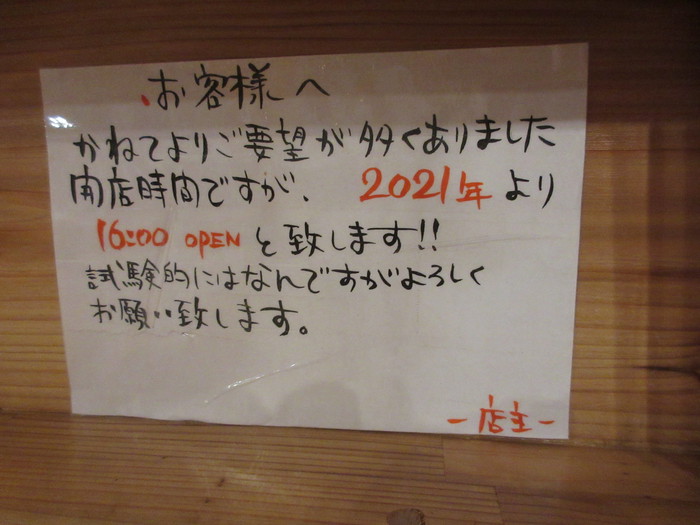 お客様へ
かねてよりご要望が多くありました
開店時間ですが、 2021年より
16:00 OPENと致します!!
試験的にはなんですがよろしく
お願い致します。
-店主-